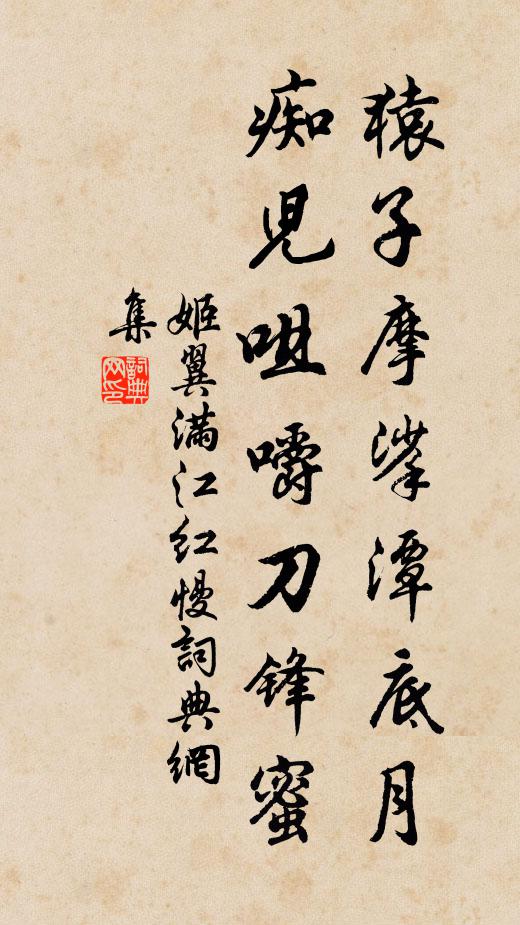 猿子摩挲潭底月
痴児咀嚼刀鋒蜜
姬翼滿江紅慢詞典網
集
詞典
网印